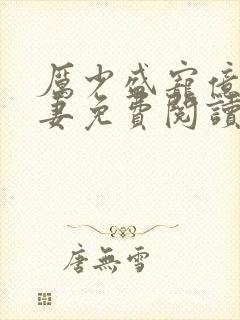 厲少盛寵億
妻免費閱讀
唐無雪